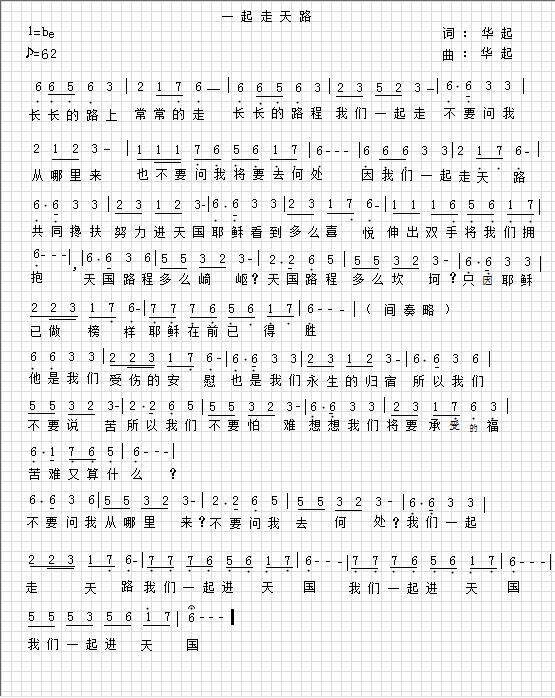 一起走天路
1=be 词：华起
♪=62 曲：华起
6 6 5 6 3 | 2 1 7 6 — | 6 6 5 6 3 | 2 3 5 2 3 — | 6·6 3 3 |
长长的路上 常常的走 长长的路程 我们一起走 不要问我
2 1 2 3 - | 1 1 1 7 6 5 6 1 7 | 6 - - - | 6 6 6 3 3 | 2 1 7 6 - |
从哪里来 也不要问我将要去何处 因我们一起走天路
6·6 3 3 | 2 3 1 2 3 - | 6·6 3 3 | 2 3 1 7 6 - | 1 1 1 6 5 6 1 7 |
共同搀扶 努力进天国耶稣看到多么喜悦 伸出双手将我们拥
6 - - - | , 6·6 3 6 | 5 5 3 2 3 - | 2·2 6 5 | 5 5 3 2 3 - | 6·6 3 3 |
抱 天国路程多么崎岖？天国路程多么坎坷？只因耶稣
2 2 3 1 7 6 - | 7 7 7 6 5 6 1 7 | 6 - - - | （间奏略）
已做榜样 耶稣在前已得胜
6 6 3 3 | 2 2 3 1 7 6 - | 6·6 3 3 | 2 3 1 2 3 - | 6·6 3 6 |
他是我们受伤的安慰 也是我们永生的归宿 所以我们
5 5 3 2 3 - | 2·2 6 5 | 5 5 3 2 3 - | 6·6 3 3 | 2 3 1 7 6 3 |
不要说苦所以我们不要怕难想想我们将要承受的福
6·1 7 6 5 | 6 - - - |
苦难又算什么？
6·6 3 6 | 5 5 3 2 3 - | 2·2 6 5 | 5 5 3 2 3 - | 6·6 3 3 |
不要问我从哪里来？不要问我去何处？我们一起
2 2 3 1 7 6 - | 7 7 7 6 5 6 1 7 | 6 - - - | 7 7 7 6 5 6 1 7 | 6 - - - |
走天路我们一起进天国 我们一起进天国
5 5 5 3 5 6 1 7 | 6 - - - |
我们一起进天国